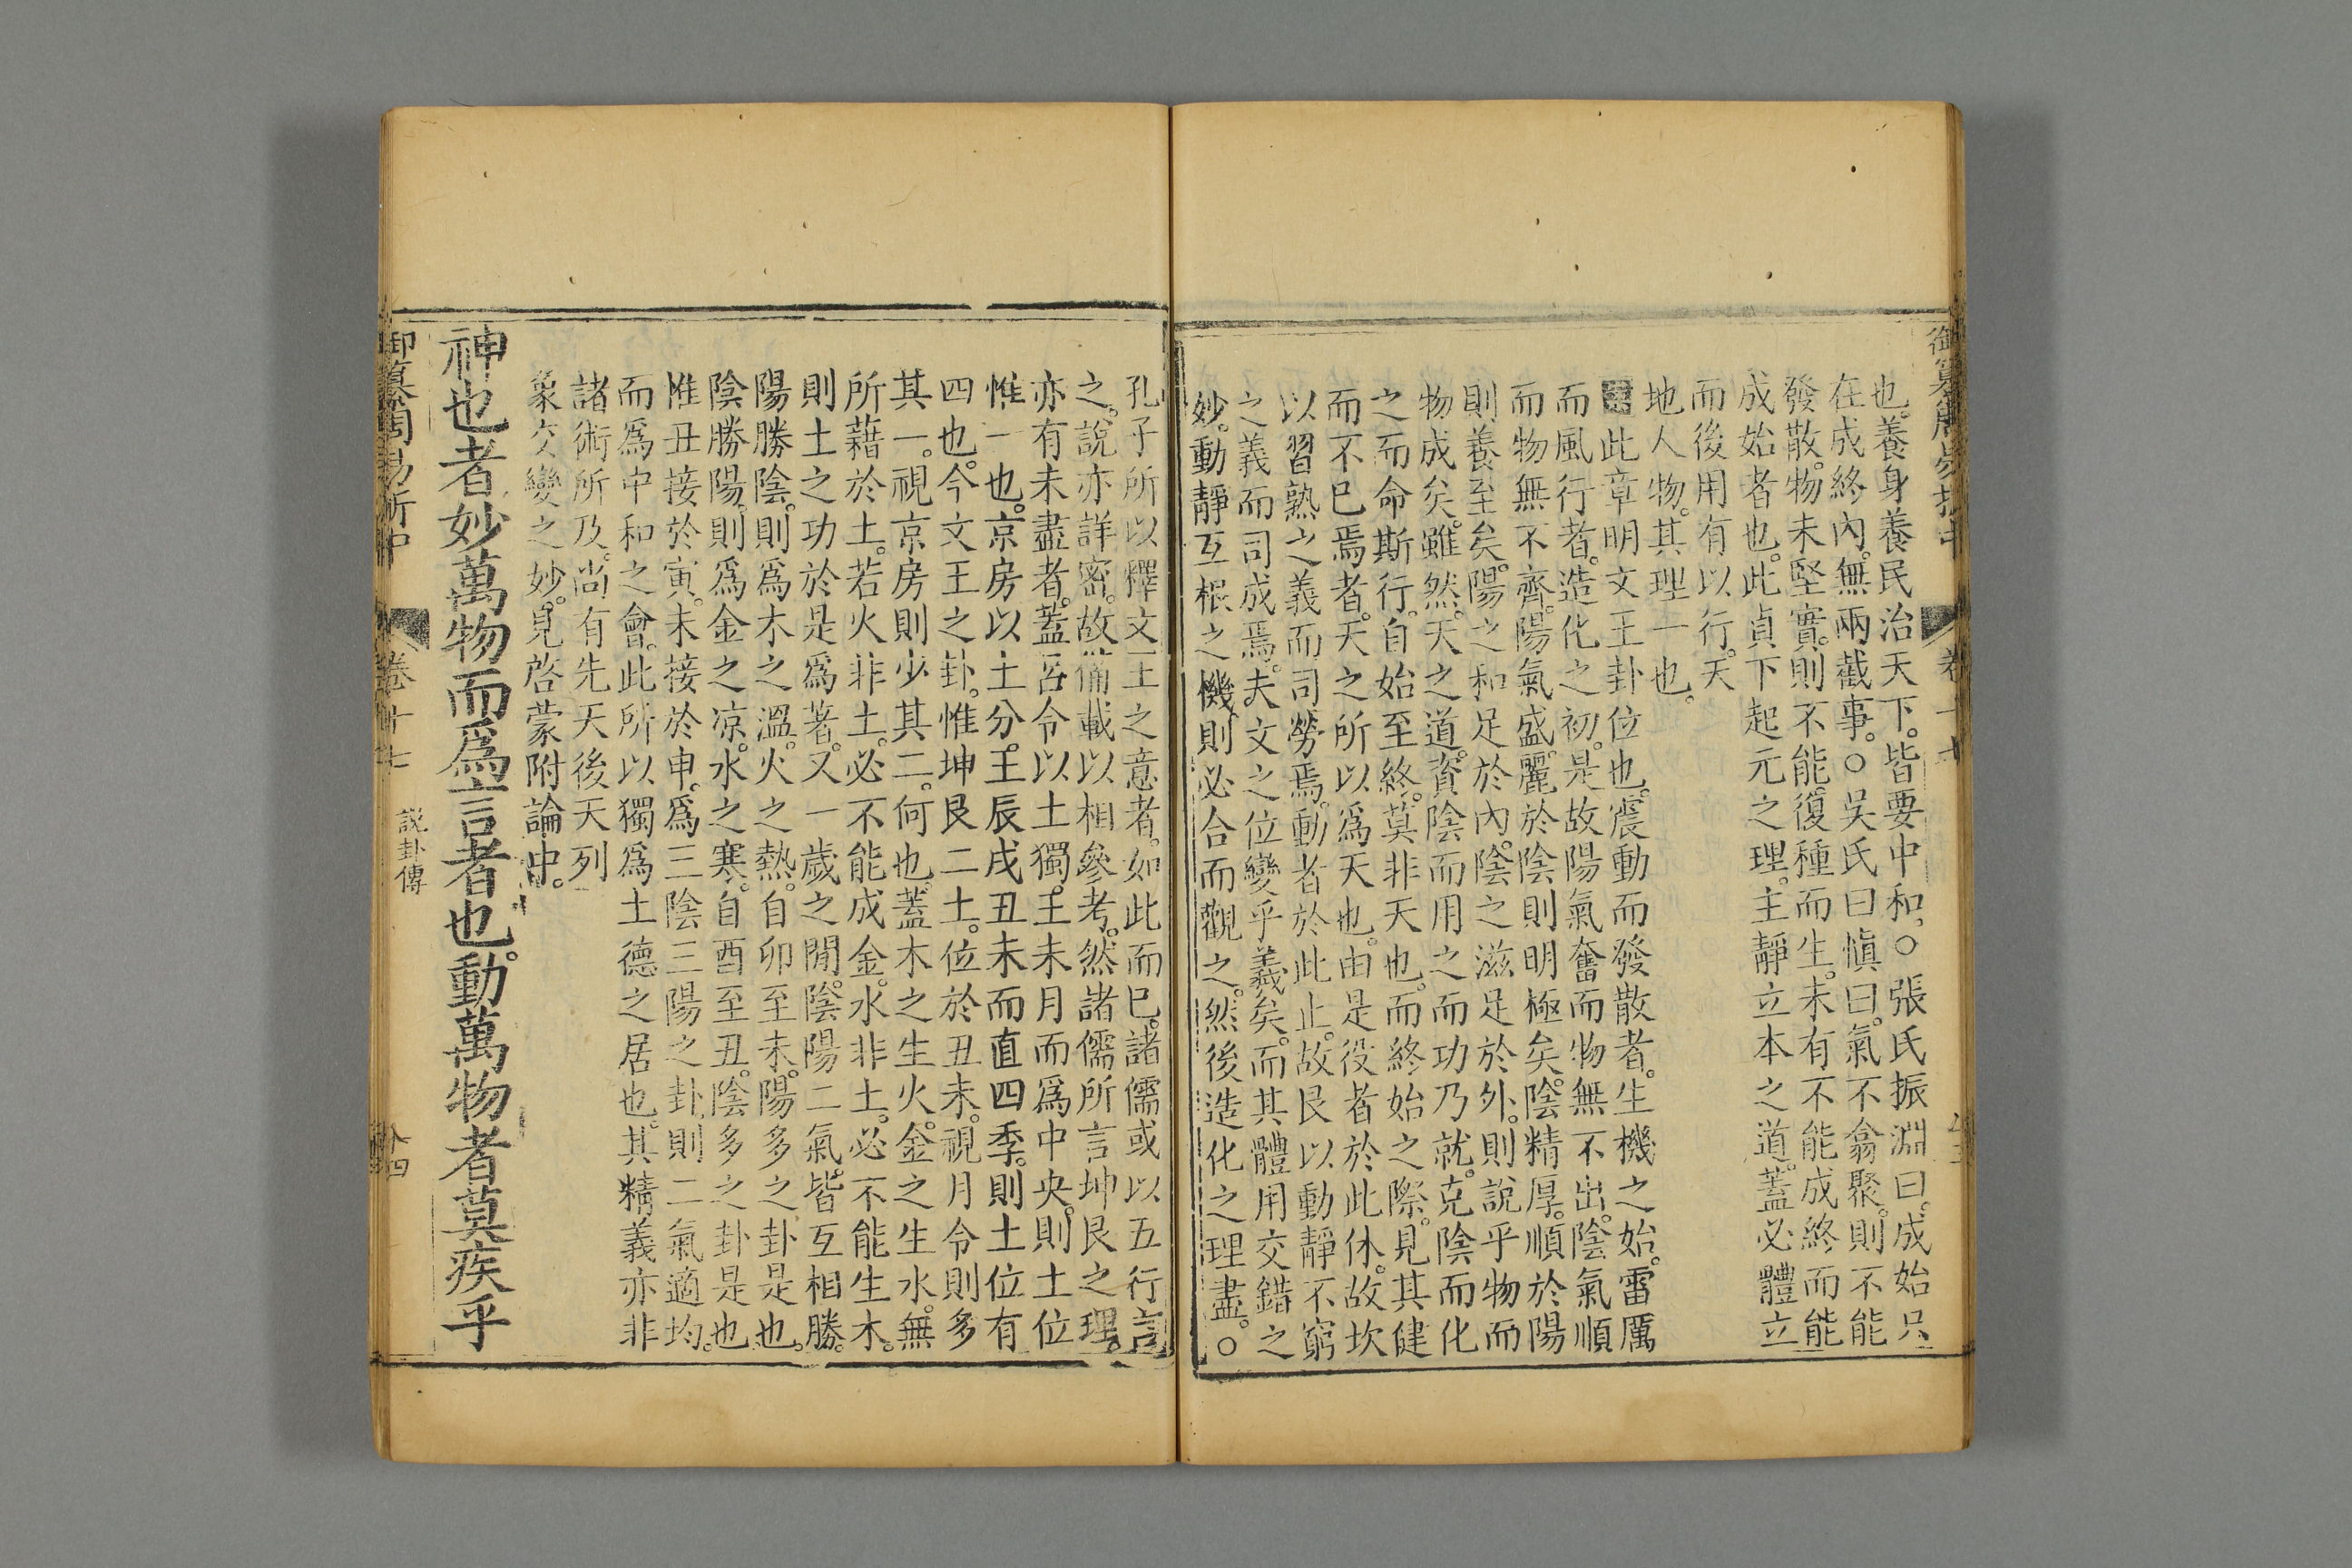 御纂周易折中
卷十七
也。養身養民治天下。皆要中和。○張氏振淵曰。成始只
在成終內。無兩截事。○吳氏曰愼曰。氣不翕聚。則不能
發散。物未堅實。則不能復種而生。未有不能成終而能
成始者也。此貞下起元之理。主靜立本之道。蓋必體立
而後用有以行。天
地人物。其理一也。
此章明文王卦位也。震動而發散者。生機之始。雷厲
而風行者。造化之初。是故陽氣奮而物無不出。陰氣順
而物無不齊。陽氣盛。麗於陰則明極矣。陰精厚。順於陽
則養至矣。陽之和足於內。陰之滋足於外。則說乎物而
物成矣。雖然。天之道。資陰而用之而功乃就。克陰而化
之而命斯行。自始至終。莫非天也。而終始之際。見其健
而不已焉者。天之所以爲天也。由是役者於此休。故坎
以習熟之義而司勞焉。動者於此止。故艮以動靜不窮
之義而司成焉。夫文之位變乎義矣。而其體用交錯之
妙。動靜互根之機。則必合而觀之。然後造化之理盡。○
孔子所以釋文王之意者。如此而已。諸儒或以五行言
之。說亦詳密。故備載以相參考。然諸儒所言坤艮之理。
亦有未盡者。蓋呂令以土獨王未月而爲中央。則土位
惟一也。京房以土分王辰戌丑未而直四季。則土位有
四也。今文王之卦。惟坤艮二土。位於丑未。視月令則多
其一。視京房則少其二。何也。蓋木之生火。金之生水。無
所藉於土。若火非土。必不能成金。水非土。必不能生木。
則土之功於是爲著。又一歲之閒。陰陽二氣。皆互相勝。
陽勝陰。則爲木之溫。火之熱。自卯至未。陽多之卦是也。
陰勝陽。則爲金之凉。水之寒。自酉至丑。陰多之卦是也。
惟丑接於寅。未接於申。爲三陰三陽之卦。則二氣適均。
而爲中和之會。此所以獨爲土德之居也。其精義亦非
諸術所及。尚有先天後天列
象交變之妙。見啓蒙附論中。
神也者妙萬物而爲言者也。動萬物者莫疾乎
御纂周易折中
卷十七
說卦傳